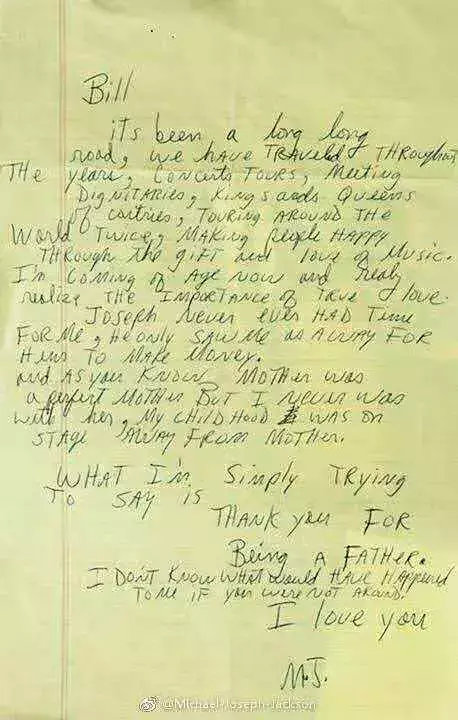 Bill
its been a long long
road, we have TRAVELD THROUGHOUT
THE years, Concerts TOURS, Meeting
DIGNITARIES, Kings ands Queens
of contries, TOURING AROUND THE
World Twice, MAKING people HAPPY
THROUGH the GIFT and love of Music.
I'm Coming of Age Now and realy
realize THE IMPORTANCE of TRUE love.
JOSEPH never ever HAD Time
FOR Me, He only SAW Me as A WAY FOR
Him To MAKE Money.
and AS you Know MOTHER WAS
a perfect MOTHER BuT I never was
with her, My CHILDHOOD WAS on
STAGE AWAY FROM MOTHER.
WHAT I'm Simply TRYING
TO SAY is
THANK you FOR
Being A FATHER.
I DON'T KNOW WHAT would HAVE HAppened
TO ME IF you WERE NOT AROUND.
I love you
M.J.
@Michael-Joseph-Jackson